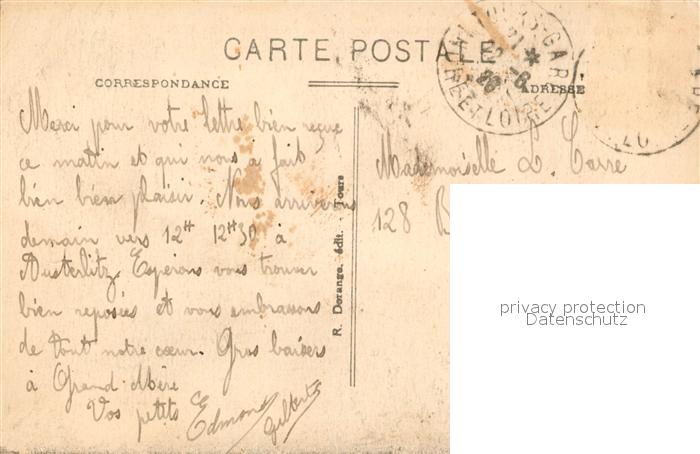 CARTE POSTALE
CORRESPONDANCE
ADRESSE
Merci pour votre lettre bien reçue
ce matin et qui nous a fait
bien bien plaisir. Nous arriverons
demain vers 12H 12H30 à
Austerlitz. Espérons vous trouver
bien reposées et vous embrassons
de tout notre cœur. Gros baisers
à Grand-Mère
Vos petits Edmond
Gilberte
R. Dorange, édit. - Tours
Mademoiselle L. Carre
128 B
privacy protection
Datenschutz